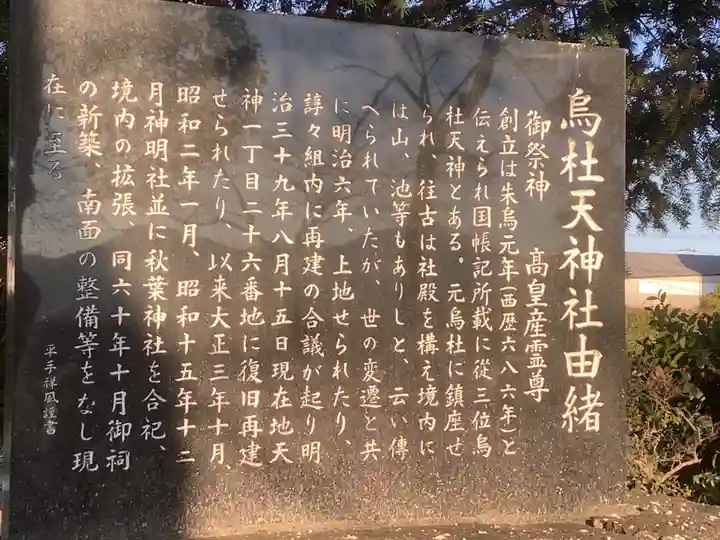 烏杜天神社由緒
御祭神　高皇産霊尊
創立は朱烏元年(西歴六八六年)と
伝えられ国帳記所載に從三位烏
杜天神とある。元烏杜に鎮座せ
られ、往古は社殿を構え境内に
は山、池等もありしと、云い傳
へられていたが、世の変遷と共
に明治六年、上地せられたり、
諄々組内に再建の合議が起り明
治三十九年八月十五日現在地天
神一丁目二十六番地に復旧再建
せられたり、以来大正三年十月、
昭和二年一月、昭和十五年十二
月神明社並に秋葉神社を合祀、
境内の拡張、同六十年十月御祠
の新築、南面の整備等をなし現
在に至る
平手禅風謹書